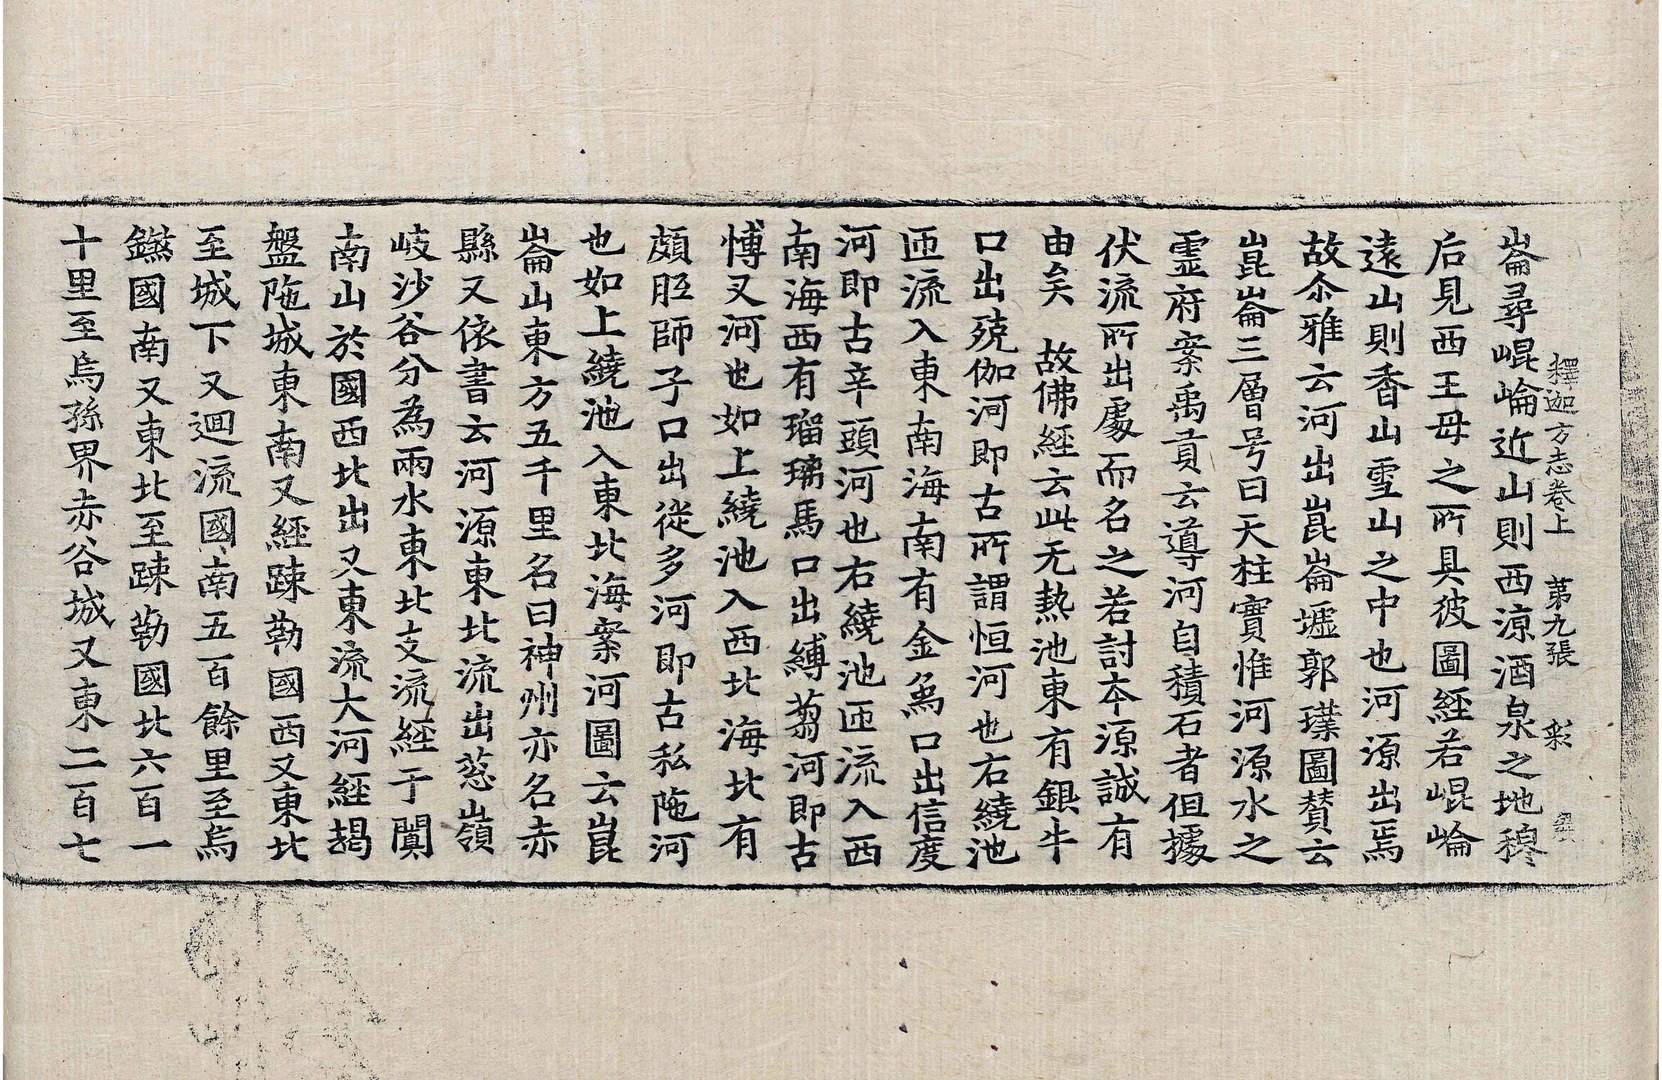 釋迦方志卷上　第九張　彩
崙尋崐崘近山則西凉酒泉之地穆
后見西王母之所具彼圖經若崐崘
遠山則香山雪山之中也河源出焉
故尒雅云河出崑崙墟郭璞圖賛云
崑崙三層号曰天柱實惟河源水之
霊府案禹貢云導河自積石者但據
伏流所出處而名之若討本源誠有
由矣　故佛經云此无熱池東有銀牛
口出殑伽河即古所謂恒河也右繞池
匝流入東南海南有金象口出信度
河即古辛頭河也右繞池匝流入西
南海西有瑠璃馬口出縛芻河即古
愽叉河也如上繞池入西北海北有
頗胝師子口出徙多河即古私陁河
也如上繞池入東北海案河圖云崑
崙山東方五千里名曰神州亦名赤
縣又依書云河源東北流出葱嶺
岐沙谷分為兩水東北支流經于闐
南山於國西北出又東流大河經朅
盤陁城東南又經踈勒國西又東北
至城下又迴流國南五百餘里至烏
鎩國南又東北至踈勒國北六百一
十里至烏孫界赤谷城又東二百七